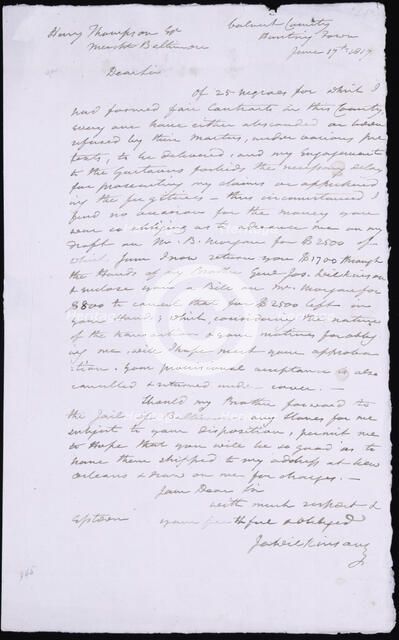 Henry Thompson Esqr Calvert County
Mercht Baltimore Hunting Town
June 17th 1817
Dear Sir
Of 25 negroes for which I
had formed fair Contracts in this County
every one have either absconded or been
refused by their Masters, under various pre
texts, to be delivered; and my Engagements
to the Gustavus forbids the necessary delay
for prosecuting my claims or apprehend
ing the fugitives — thus circumstanced I
find no occasion for the money you
were so obliging as to advance me on my
draft on Mr. B. Morgan for $2500 of
which sum I now return you $1700 through
the Hands of my Brother Genl Jos. Wilkinson
& enclose you a Bill on Mr. Morgan for
$800 to cancel that for $2500 left in
your Hands; which, considering the nature
of the transaction & your motives for oblig
ing me, will I hope meet your approba
tion. your provisional acceptance is also
cancelled & returned under cover. —
Should my Brother forward to
the Jail of Balto any Slaves for me
subject to your disposition, permit me
to Hope that you will be so good as to
have them shipped to my address at New
Orleans & draw on me for charges. —
I am Dear Sir
with much respect &
esteem your faithful & obliged
Ja Wilkinson